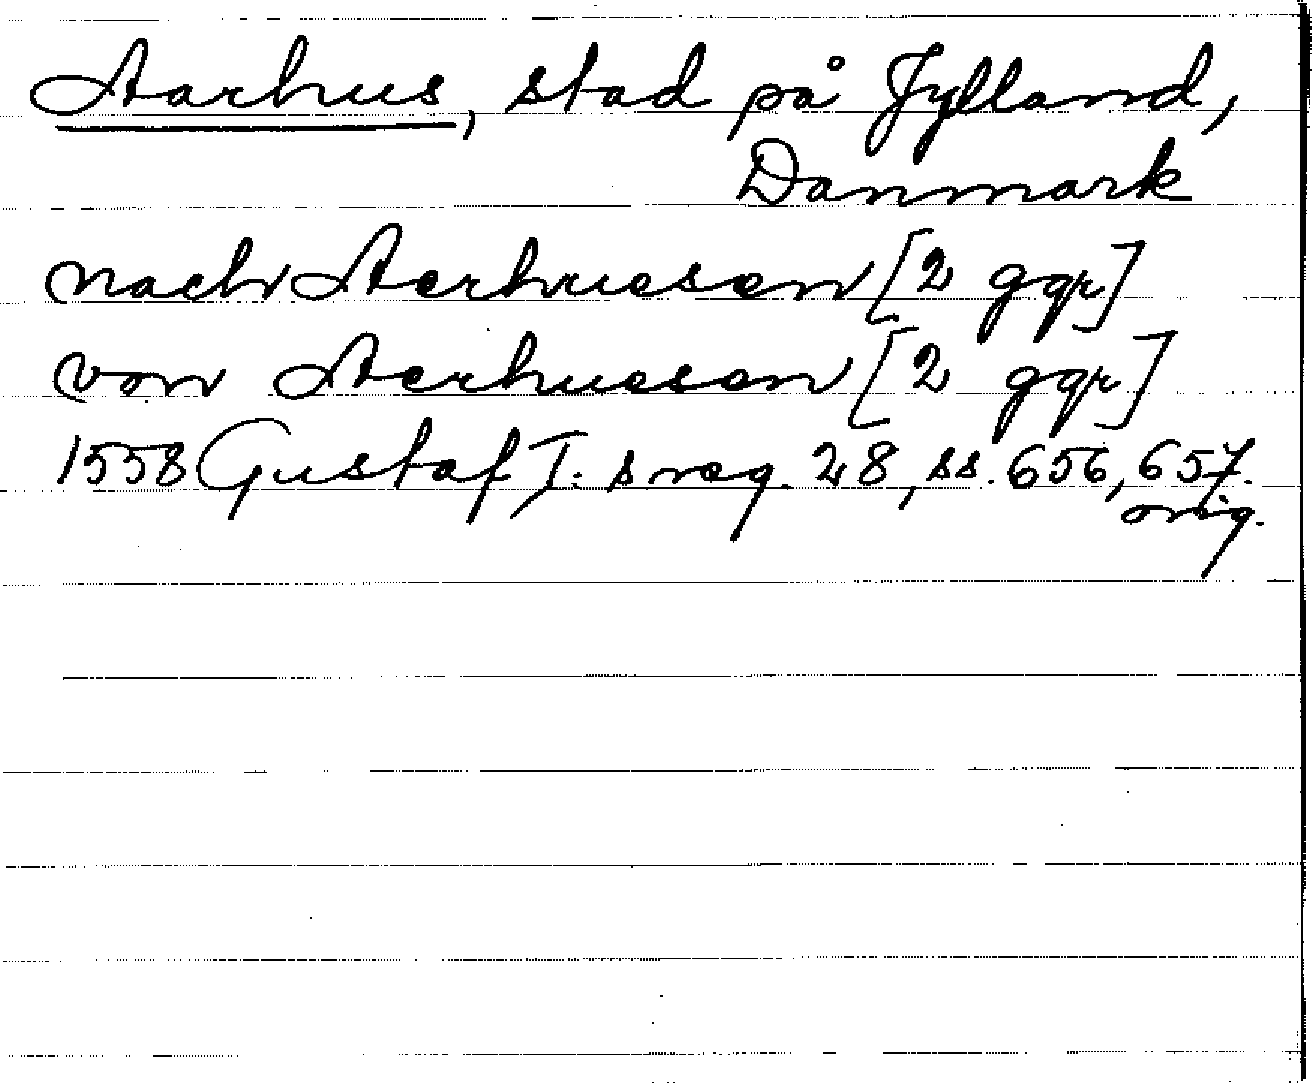 Aarhus, stad på Jylland,
Danmark
nach Aerhuesen [2 ggr]
von Aerhuesen [2 ggr]
1558 Gustaf I:s reg. 28, ss. 656, 657.
orig.